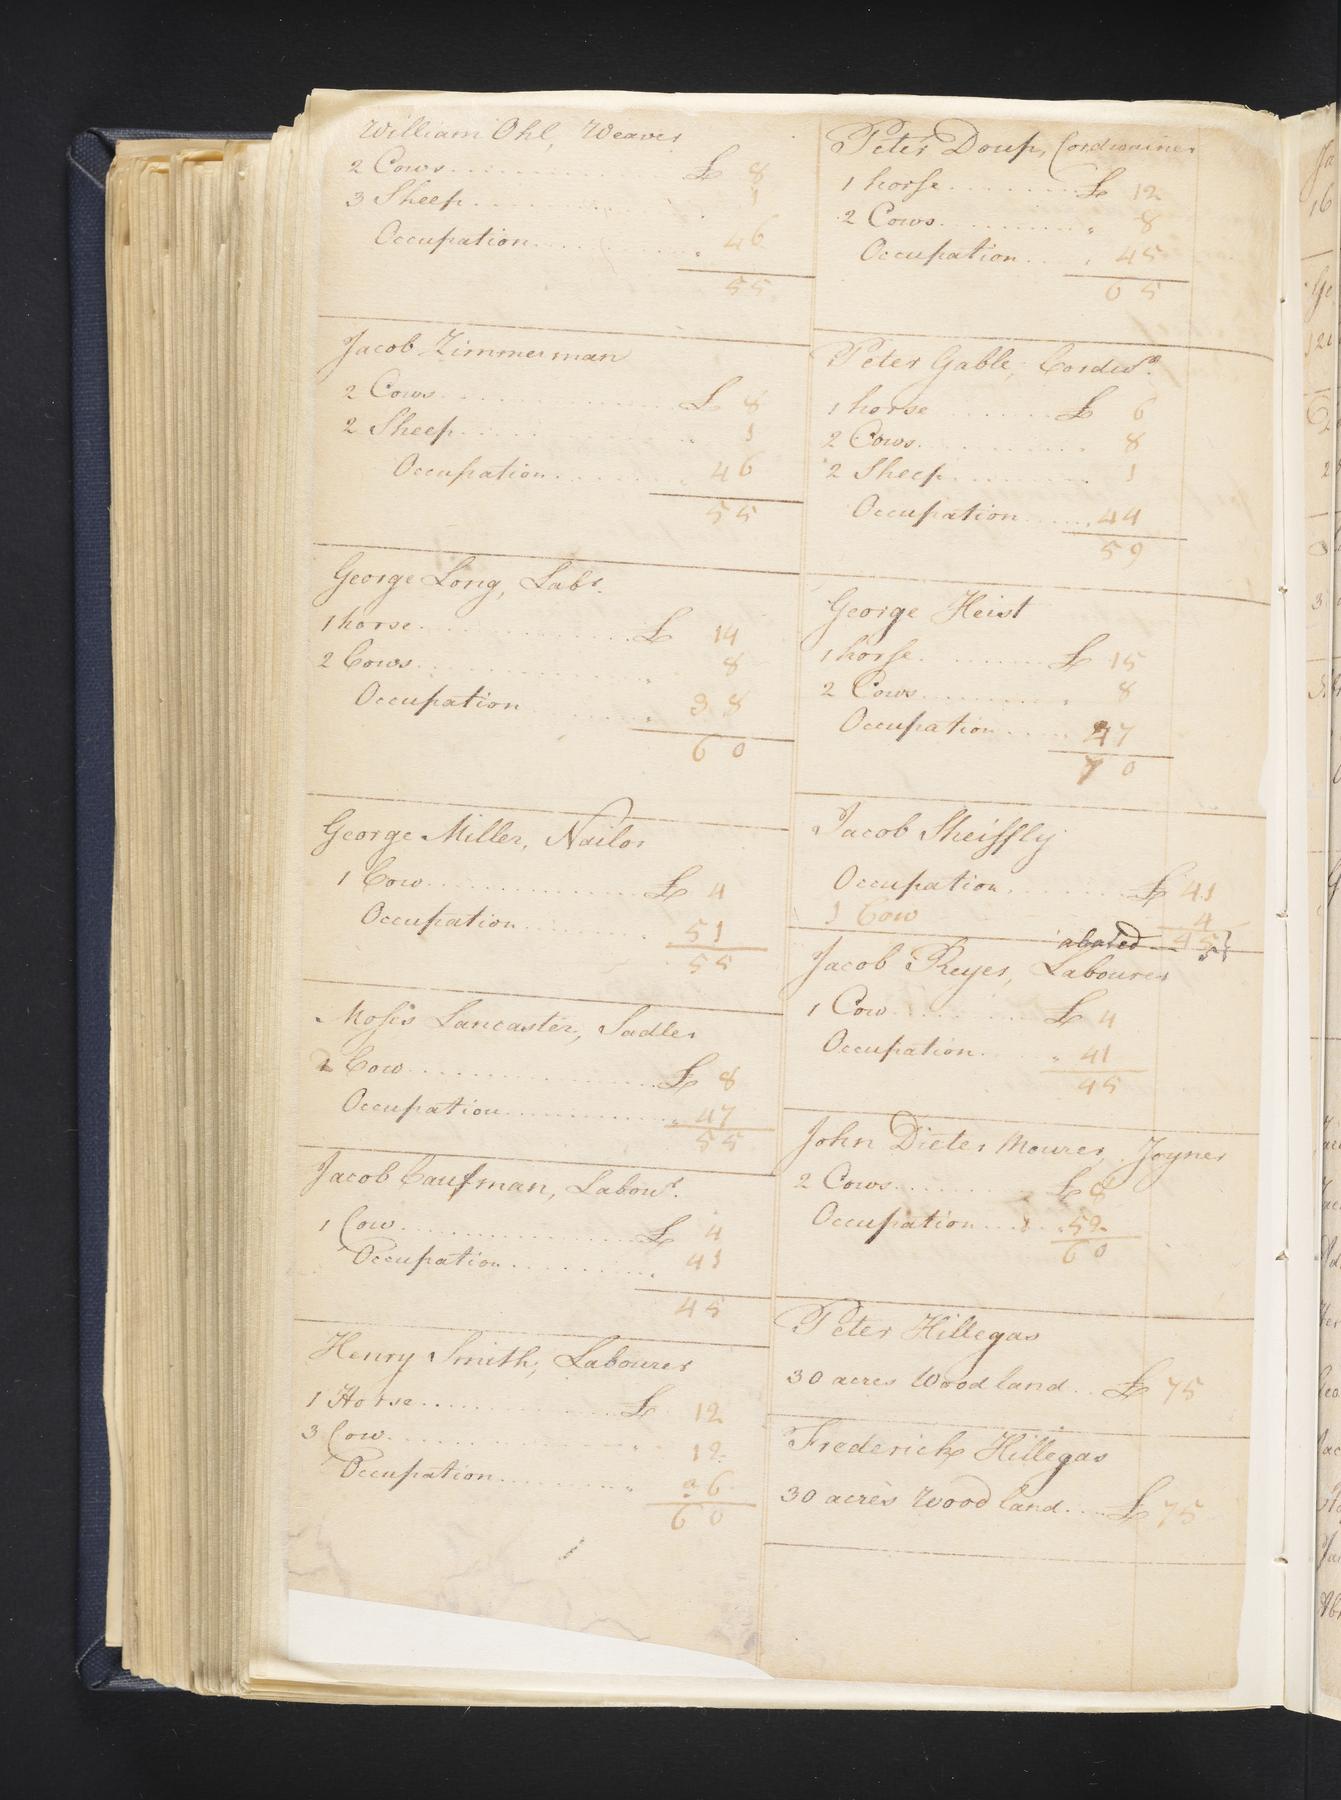 William Ohl, Weaver
2 Cows . . . . £ 8
3 Sheep . . . . 1
Occupation . . . . 46
55
Jacob Zimmerman
2 Cows . . . . £ 8
2 Sheep . . . . 1
Occupation . . . . 46
55
George Long, Labr.
1 horse . . . . £ 14
2 Cows . . . . 8
Occupation . . . . 38
60
George Miller, Nailor
1 Cow . . . . £ 4
Occupation . . . . 51
55
Moses Lancaster, Sadler
2 Cow . . . . £ 8
Occupation . . . . 47
55
Jacob Caufman, Labour.
1 Cow . . . . £ 4
Occupation . . . . 41
45
Henry Smith, Labourer
1 Horse . . . . £ 12
3 Cow . . . . 12
Occupation . . . . 36
60
Peter Doup, Cordwainer
1 horse . . . . £ 12
2 Cows . . . . 8
Occupation . . . . 45
65
Peter Gable, Cordwr.
1 horse . . . . £ 6
2 Cows . . . . 8
2 Sheep . . . . 1
Occupation . . . . 44
59
George Heist
1 horse . . . . £ 15
2 Cows . . . . 8
Occupation . . . . 47
70
Jacob Sheiffly
Occupation . . . . £ 41
1 Cow 4
abated 45
Jacob Reyer, Labourer
1 Cow . . . . £ 4
Occupation . . . . 41
45
John Dieter Mourer, Joyner
2 Cows . . . . £ 8
Occupation . . . . 52
60
Peter Hillegas
30 acres Wood land . . £ 75
Frederick Hillegas
30 acres Wood land . . . £ 75